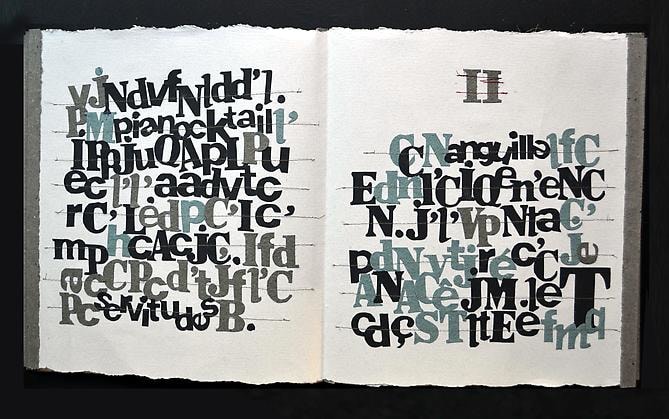 vjNdvfNldd'l.
P.Mpianocktaill'
IPpJuQApLPu
ecl'l'aadvtc
rC'LédpC'Ic'
mphcACjC.Ifd
acCPCd'tJfl'C
PcservitudesB.
II
CCNanguillelfC
Ednl'CIQen'eNC
N.J'l'VpNtaC'
pdNvtjréc'CJe
ANACêjM.leT
cdçSTltEefmq